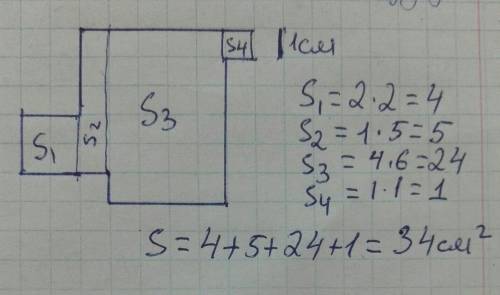 S4 1см
S1 S2 S3
S1 = 2·2=4
S2 = 1·5=5
S3 = 4·6=24
S4 = 1·1=1
S=4+5+24+1=34см²